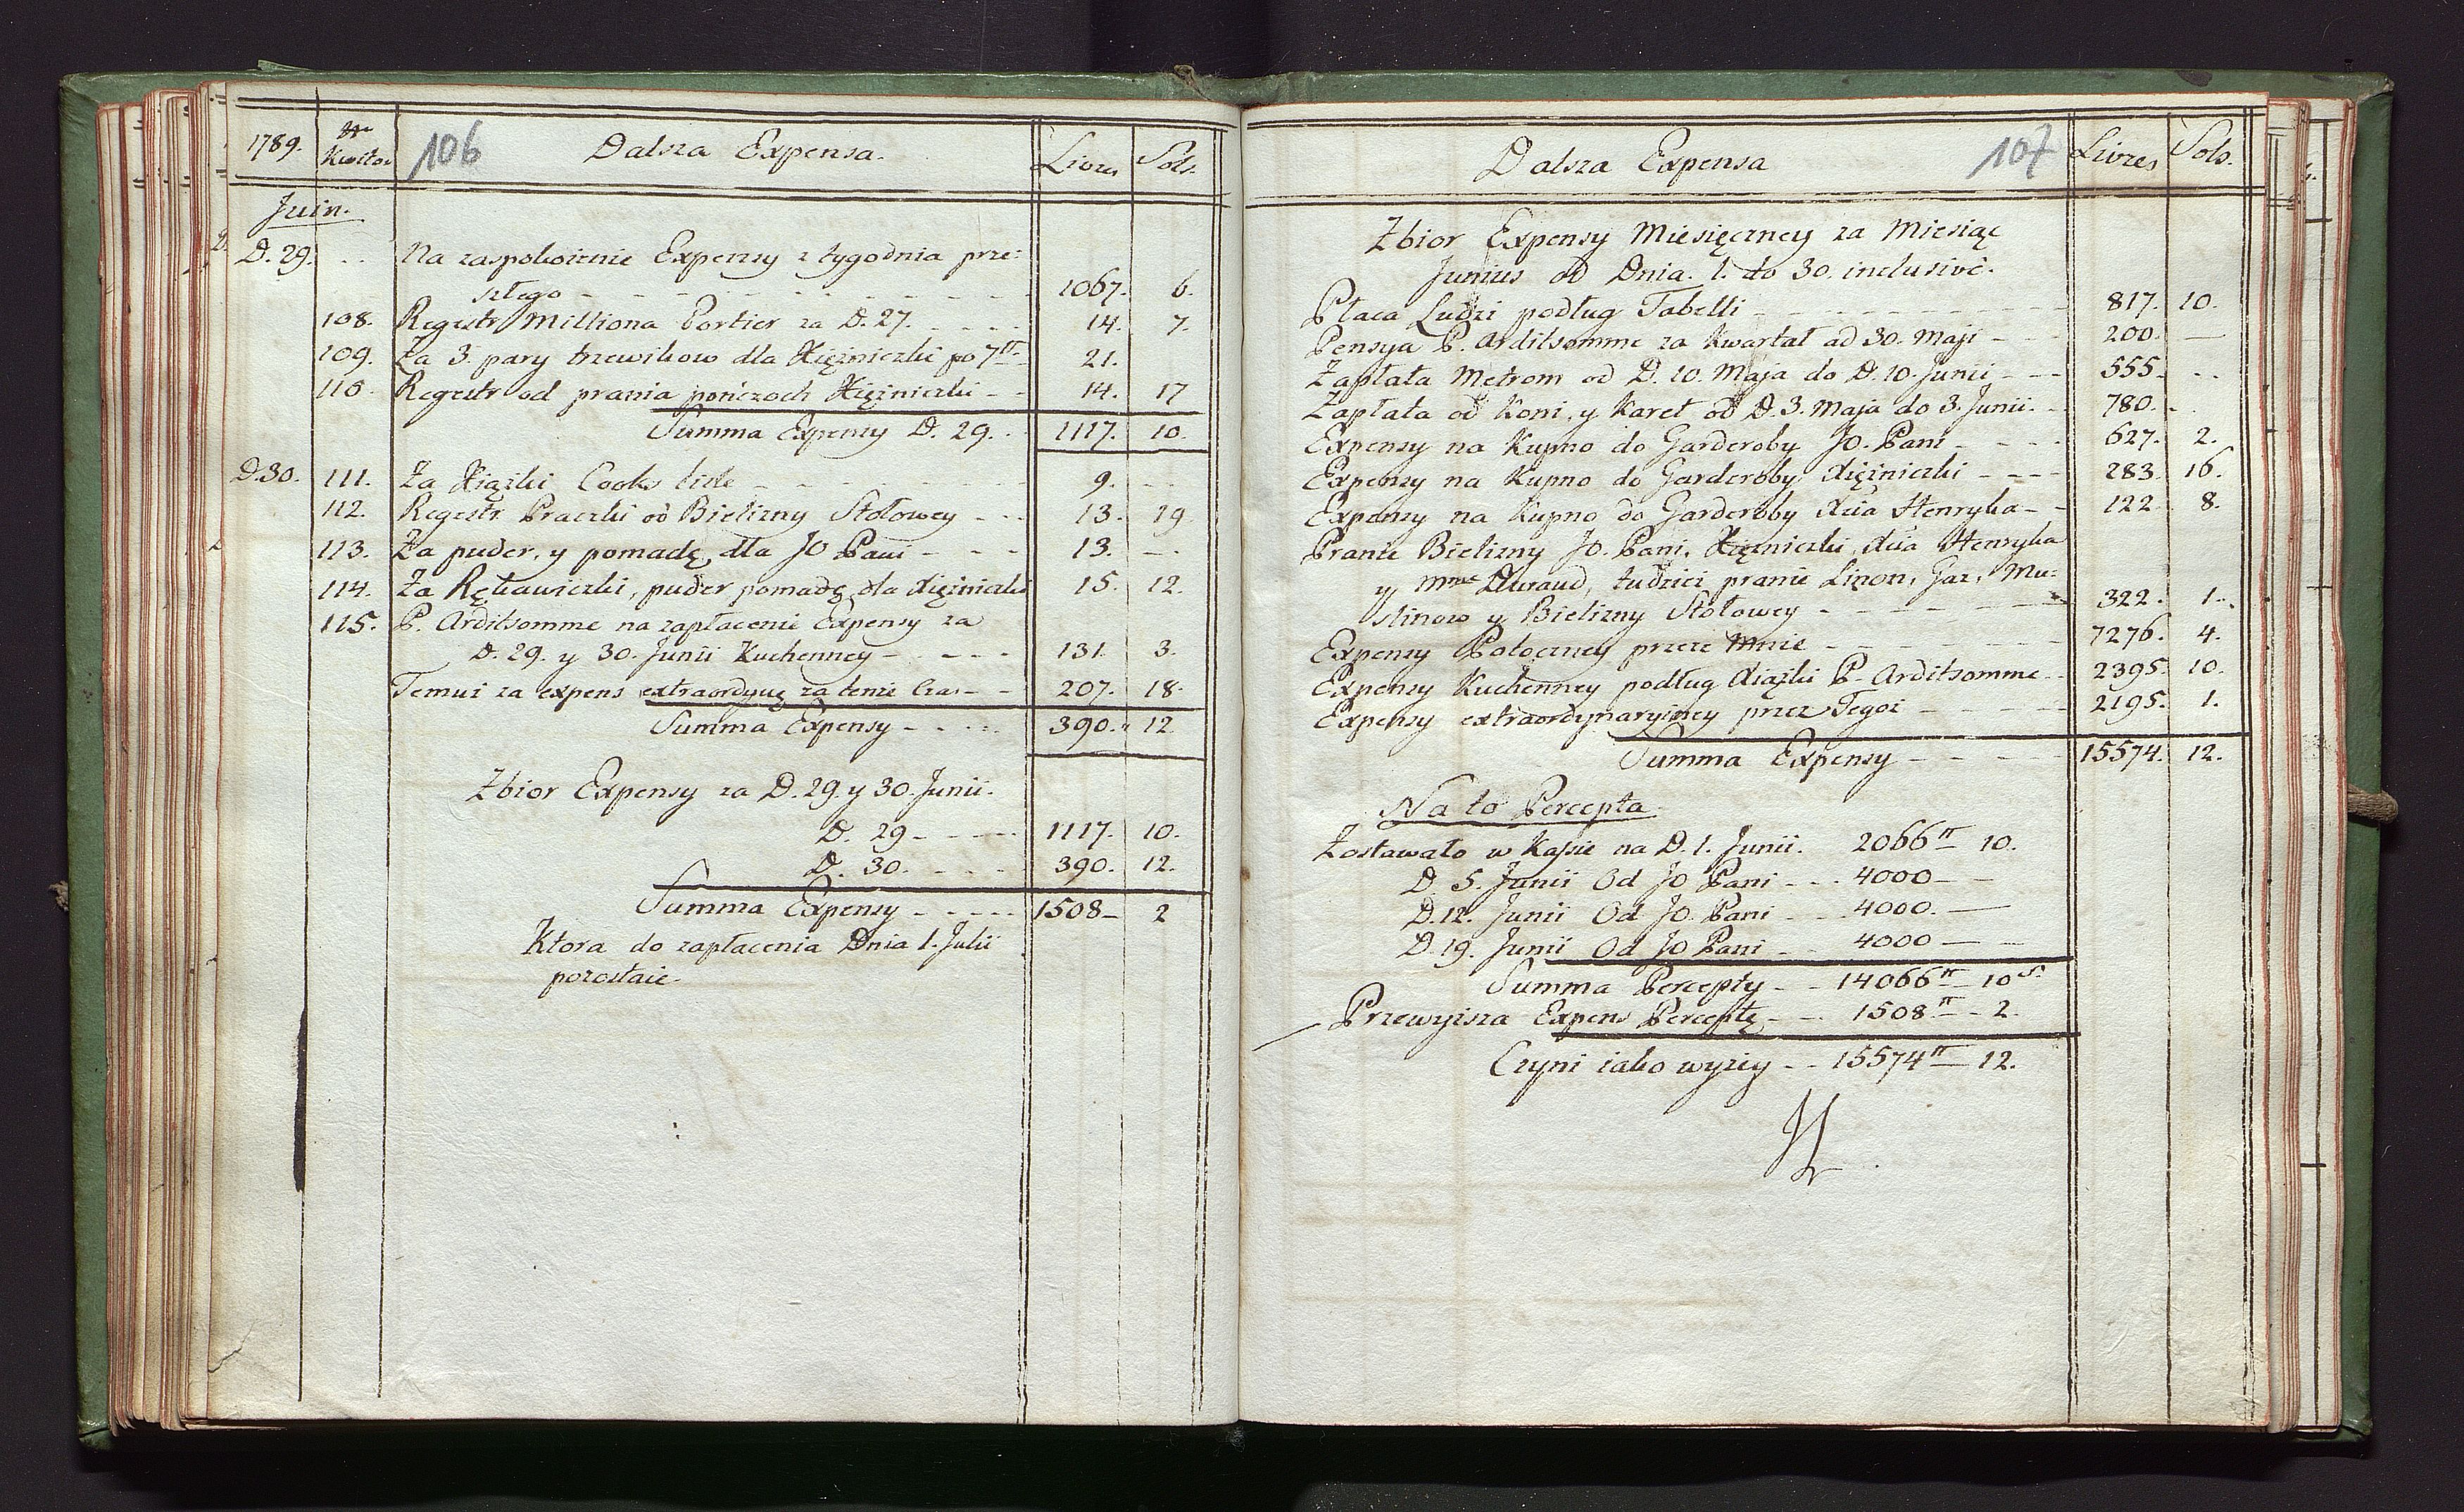 1789. Nro Kwitow 106 Dalsza Expensa. Livres Sols.
Juin.
D. 29. .. Na zaspokoienie Expensy z tygodnia prze:
szłego - - - 1067. 6.
108. Regestr Milliona Portier za D. 27. - - - 14. 7.
109. Za 3. pary trzewikow dla Xięzniczki po 7tt - 21.
110. Regestr od prania pończoch Xięzniczki - - 14. 17
Summa Expensy D. 29. - 1117. 10.
D. 30. 111. Za Xiązki Cooks - - - 9. - -
112. Regestr Praczki od Bielizny Stołowey - - - 13. 19
113. Za puder, y pomadę, dla JO Pani - - - 13. - -
114. Za Rękawiczki, puder pomadę dla Xięzniczki 15. 12.
115. P. Arditsomme na zapłacenie Expensy za
D. 29. y 30. Junii Kuchenney - - - - 131. 3.
Temuż za expens extraordynę za tenże Czas - - 207. 18.
Summa Expensy - - - - 390. 12
Zbior Expensy za D. 29. y 30. Junii.
D. 29 - - - - 1117. 10.
D. 30. - - - - 390. 12.
Summa Expensy - - - - 1508 - 2
Ktora do zapłacenia Dnia 1. Julii
pozostaie.
Dalsza Expensa 107 Livres Sols.
Zbior Expensy Miesięczney za Miesiąc
Junius od Dnia. 1. do 30. inclusivè.
Płaca Ludzi podług Tabelli - - - 817. 10.
Pensya P. Arditsomme za Kwartał ad 30. Maji - - 200. —
Zapłata Metrom od D. 10. Maja do D. 10. Junii - - - 555. - -
Zapłata od Koni, y Karet od D. 3. Maja do 3. Junii. - - 780. - .
Expensy na Kupno do Garderoby JO. Pani - - - - 627. 2.
Expensy na Kupno do Garderoby Xięzniczki - - - 283. 16.
Expensy na Kupno do Garderoby Xcia Henryka - - 122. 8.
Pranie Bielizny JO. Pani, Xięzniczki, Xcia Henryka
y Mme Duraud, tudziez pranie Linon, Gaz, Mu:
slinow y Bielizny Stołowey - - - 322. 1.
Expensy Potoczney przeze Mnie - - - 7276. 4.
Expensy Kuchenney podług Xiązki P. Arditsomme - - 2395. 10.
Expensy extraordynaryiney przez Tegoż - - - 2195. 1.
Summa Expensy - - - - 15574. 12.
Na to Percepta.
Zostawało w Kassie na D. 1. Junii. 2066tt 10.
D. 5. Junii Od JO Pani - - - 4000 — —
D. 12. Junii Od JO. Pani - - - 4000. —
D. 19. Junii Od JO Pani - - 4000 — —
Summa Percepty - - 14066tt 10s
Przewyisza Expens Perceptę - - 1508tt - 2.
Czyni iako wyzey - - 15574tt 12.